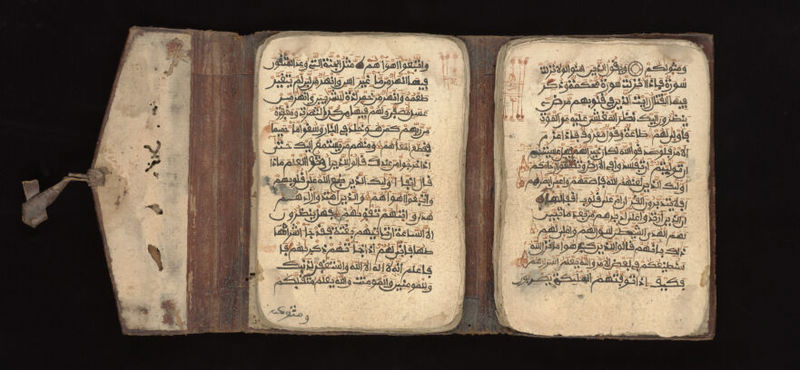 ومثويكم ويقول الذين ءامنوا لولا نزلت
سورة فإذا أنزلت سورة محكمة وذكر
فيها القتال رأيت الذين في قلوبهم مرض
ينظرون إليك نظر المغشي عليه من الموت
فأولى لهم طاعة وقول معروف فإذا عزم
الأمر فلو صدقوا الله لكان خيرا لهم فهل عسيتم
إن توليتم أن تفسدوا في الأرض وتقطعوا أرحامكم
أولئك الذين لعنهم الله فأصمهم وأعمى أبصرهم
أفلا يتدبرون القرءان أم على قلوب أقفالها
إن الذين ارتدوا على أدبرهم من بعد ما تبين
لهم الهدى الشيطن سول لهم وأملى لهم
ذلك بأنهم قالوا للذين كرهوا ما نزل الله
سنطيعكم في بعض الأمر والله يعلم أسرارهم
فكيف إذا توفتهم الملئكة يضربون
واتبعوا أهواءهم مثل الجنة التي وعد المتقون
فيها أنهر من ماء غير ءاسن وأنهر من لبن لم يتغير
طعمه وأنهر من خمر لذة للشربين وأنهر من
عسل مصفى ولهم فيها من كل الثمرت ومغفرة
من ربهم كمن هو خلد في النار وسقوا ماء حميما
فقطع أمعاءهم ومنهم من يستمع إليك حتى
إذا خرجوا من عندك قالوا للذين أوتوا العلم ماذا
قال ءانفا أولئك الذين طبع الله على قلوبهم
واتبعوا أهواءهم والذين اهتدوا زادهم
هدى وءاتيهم تقويهم فهل ينظرون
إلا الساعة أن تأتيهم بغتة فقد جاء أشراطها
فأنى لهم إذا جاءتهم ذكريهم
فاعلم أنه لا إله إلا الله واستغفر لذنبك
وللمومنين والمومنت والله يعلم متقلبكم
ومثويكم